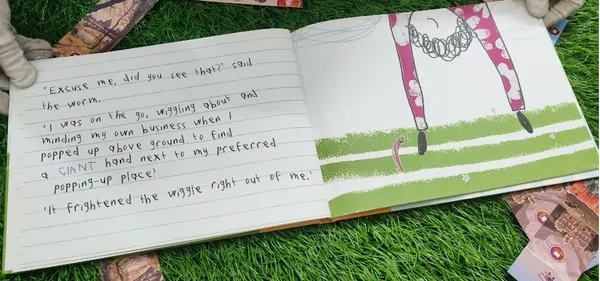 'Excuse me, did you see that?' said
the worm.
'I was on the go, wiggling about and
minding my own business when I
popped up above ground to find
a GIANT hand next to my preferred
popping-up place!
'It frightened the wiggle right out of me.'